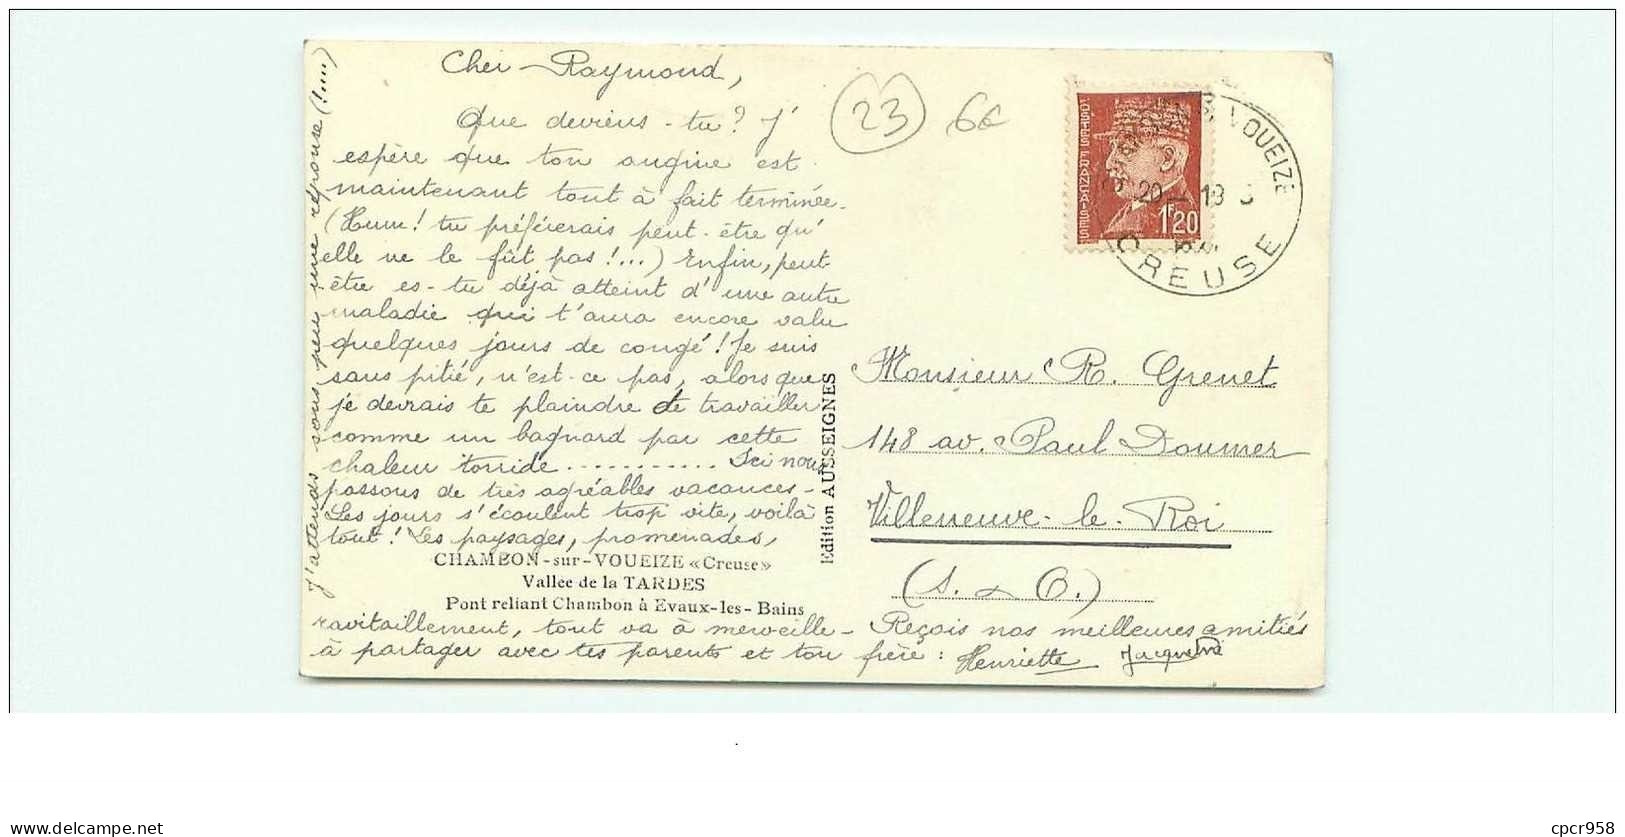 Cher Raymond,
Que deviens-tu? J'
espère que ton angine est
maintenant tout à fait terminée.
(Hum! tu préférerais peut-être qu'
elle ne le fût pas!...) Enfin, peut
être es-tu déjà atteint d'une autre
maladie qui t'aura encore valu
quelques jours de congé! Je suis
sans pitié, n'est-ce pas, alors que
je devrais te plaindre de travailler
comme un bagnard par cette
chaleur torride ........... Ici nous
passons de très agréables vacances-
Les jours s'écoulent trop vite, voilà
tout! Les paysages, promenades,
ravitaillement, tout va à merveille-
Reçois nos meilleures amitiés
à partager avec tes parents et ton frère: Henriette
J'attends sous peu une réponse (!...)
CHAMBON-sur-VOUEIZE «Creuse»
Vallée de la TARDES
Pont reliant Chambon à Evaux-les-Bains
Edition AUSSEIGNES
23
6€
POSTES FRANÇAISES
1F20
VOUEIZE
20 - 18
CREUSE
Monsieur R. Grenet
148 av. Paul Doumer
Villeneuve-le-Roi
(S. & O.)
cpcr958